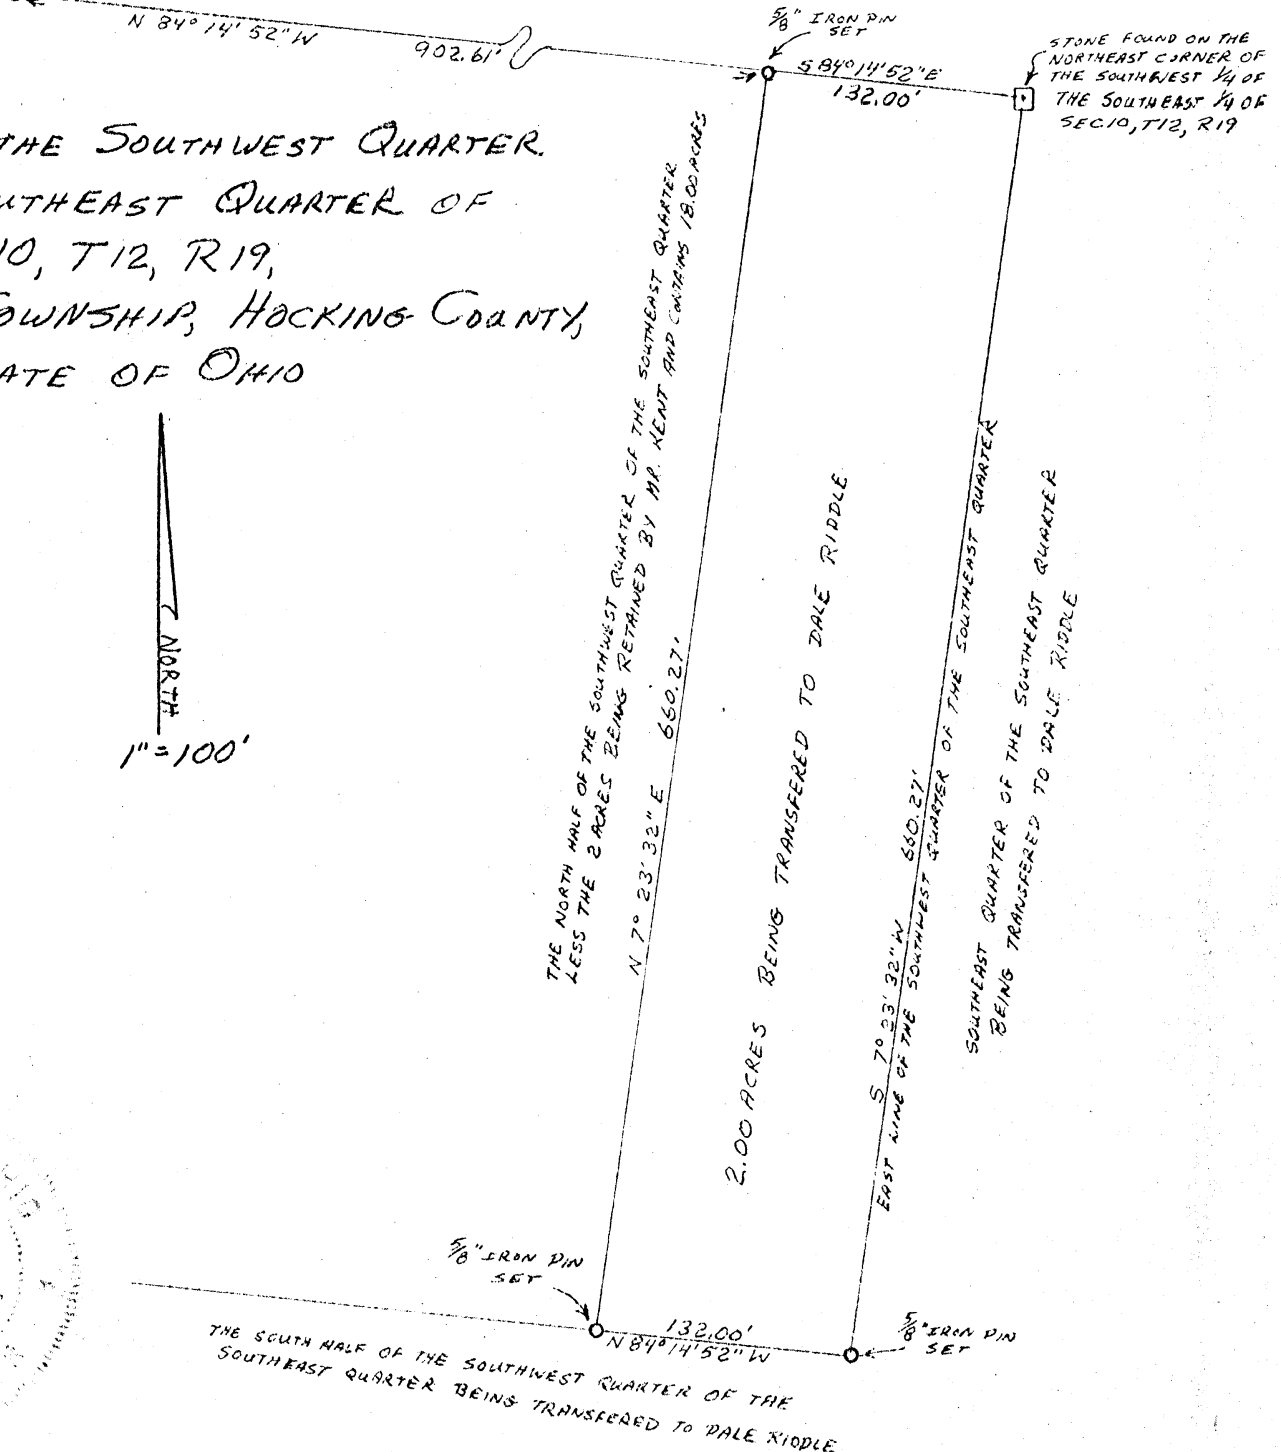 N 84° 14' 52" W
902.61'
5/8" IRON PIN
SET
S 84° 14' 52" E
132.00'
STONE FOUND ON THE
NORTHEAST CORNER OF
THE SOUTHWEST 1/4 OF
THE SOUTHEAST 1/4 OF
SEC10, T12, R19
THE SOUTHWEST QUARTER
UTHEAST QUARTER OF
10, T12, R19,
OWNSHIP, HOCKING COUNTY,
ATE OF OHIO
NORTH
1"=100'
THE NORTH HALF OF THE SOUTHWEST QUARTER OF THE SOUTHEAST QUARTER
LESS THE 2 ACRES BEING RETAINED BY MR. KENT AND CONTAINS 18.00 ACRES
N 7° 23' 32" E 660.27'
2.00 ACRES BEING TRANSFERED TO DALE RIDDLE
S 7° 23' 32" W 660.27'
EAST LINE OF THE SOUTHWEST QUARTER OF THE SOUTHEAST QUARTER
SOUTHEAST QUARTER OF THE SOUTHEAST QUARTER
BEING TRANSFERED TO DALE RIDDLE
5/8" IRON PIN
SET
132.00'
N 84° 14' 52" W
5/8" IRON PIN
SET
THE SOUTH HALF OF THE SOUTHWEST QUARTER OF THE
SOUTHEAST QUARTER BEING TRANSFERED TO DALE RIDDLE